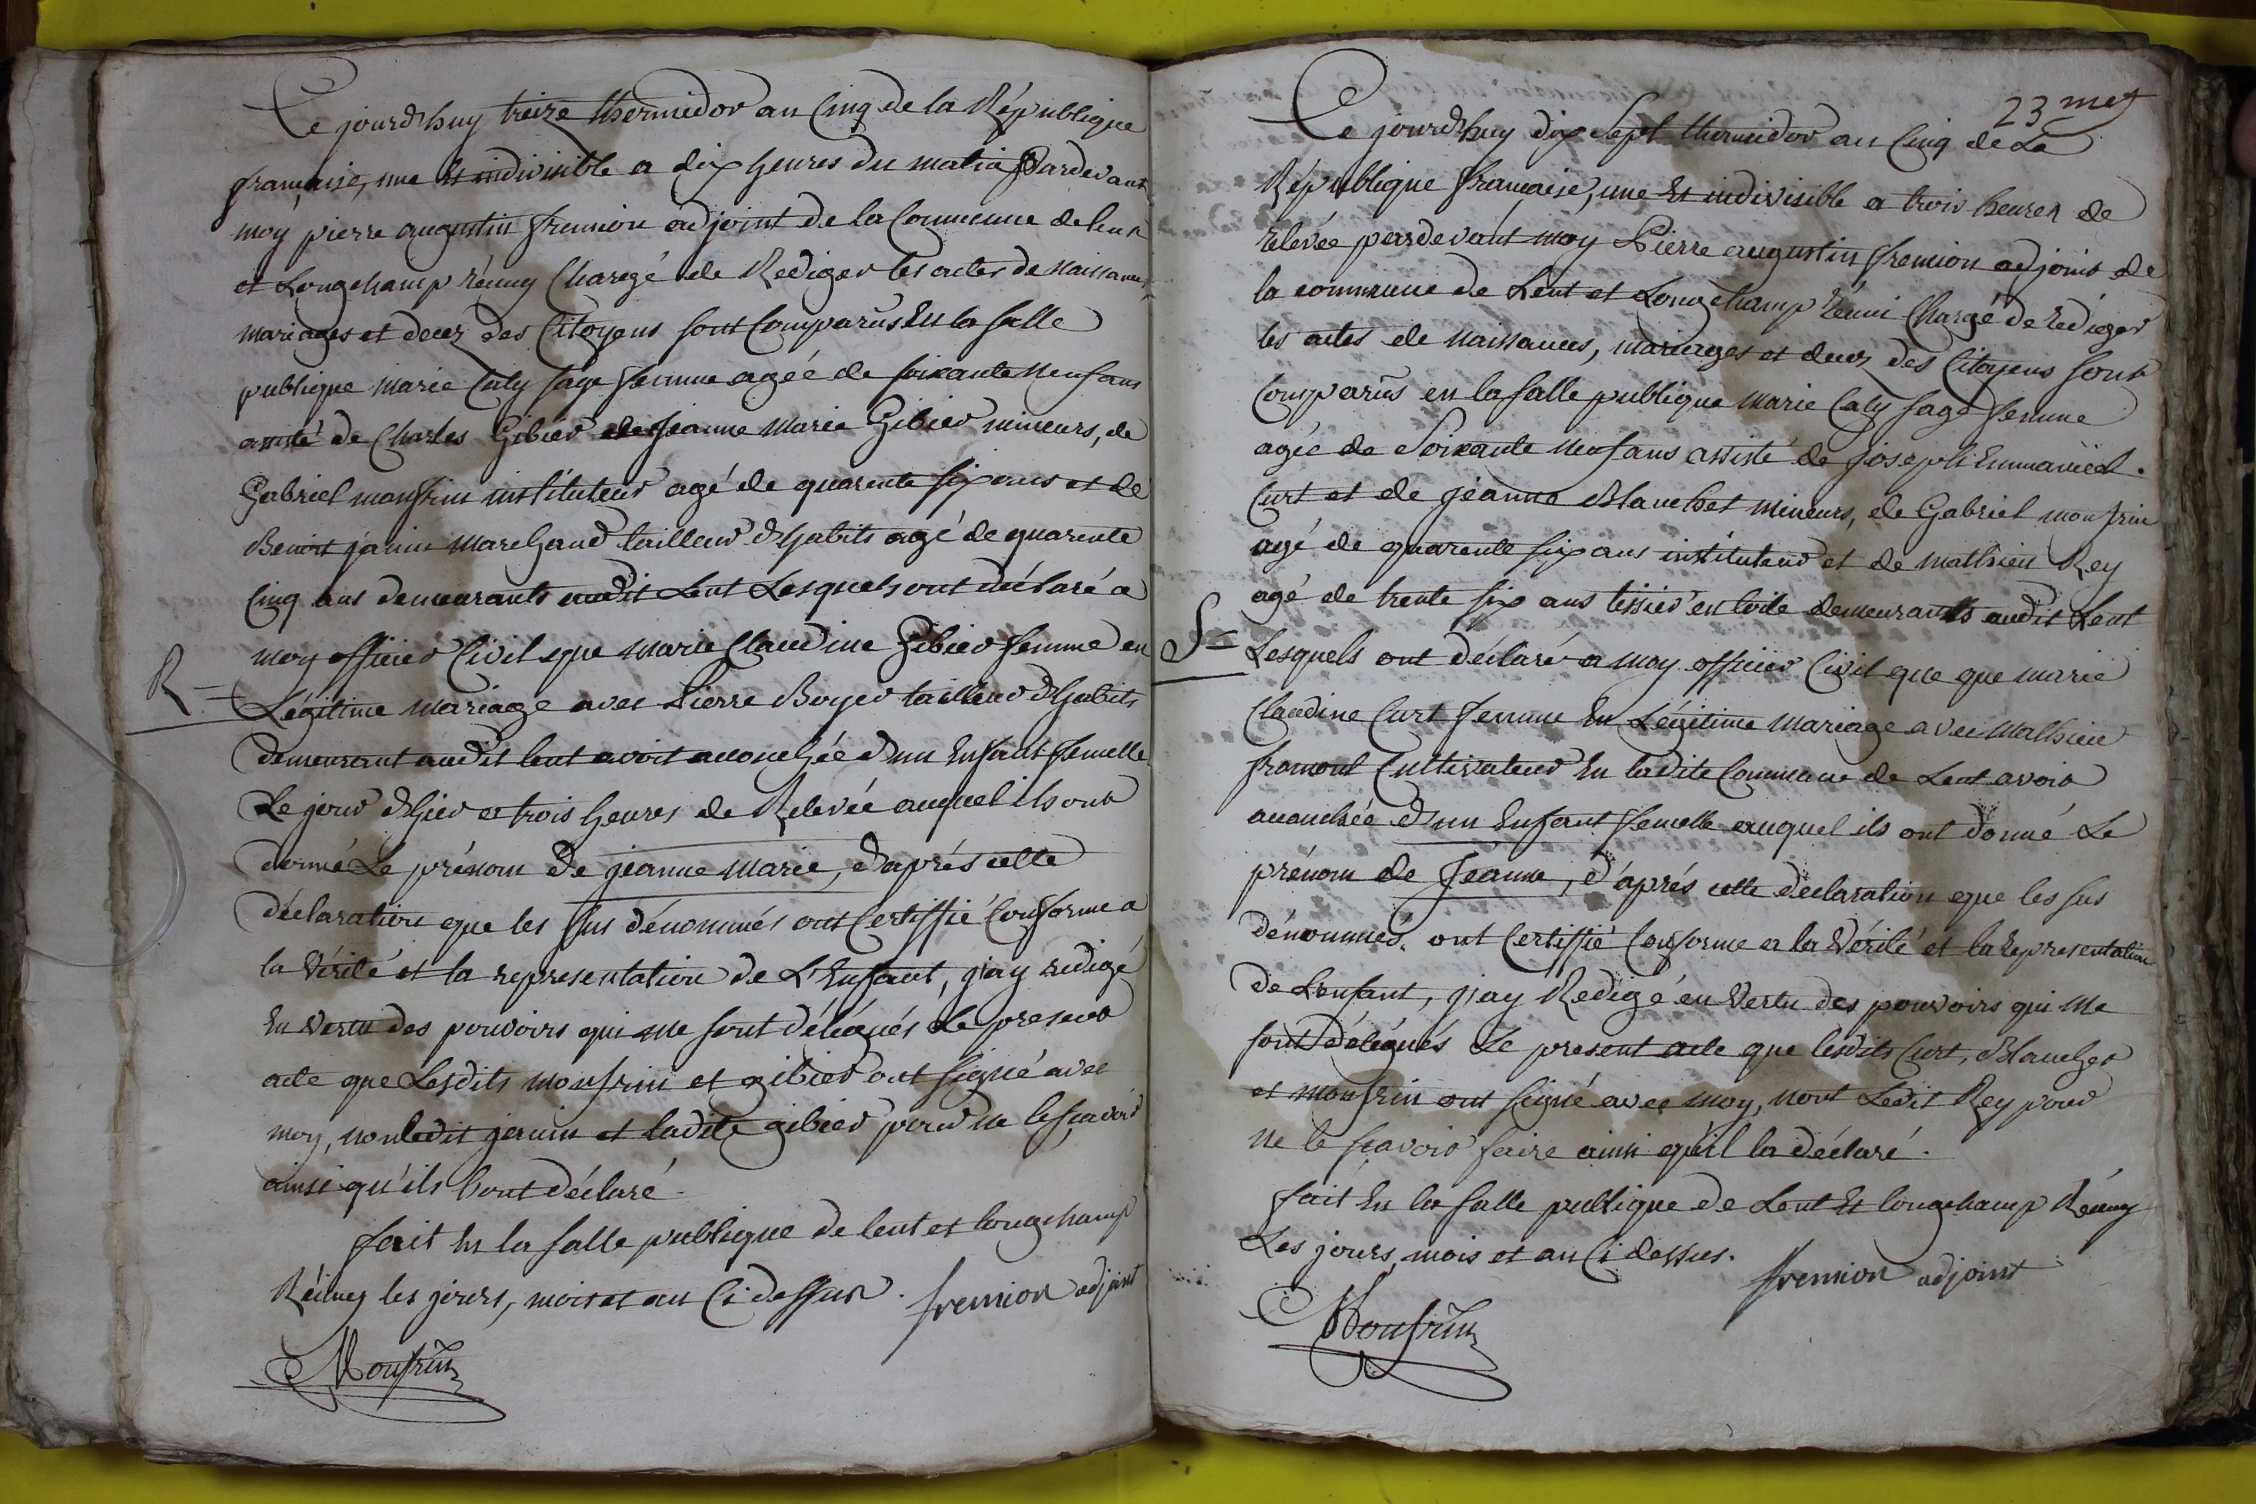 Ce jourd'huy treize thermidor an Cinq de la République
française, une et indivisible a dix heures du matin Pardevant
moy pierre augustin fremion adjoint de la Commune de lent
et Longchamp réuny Chargé de Rediger les actes de Naissances,
mariages et decez des Citoyens sont Comparus En la salle
publique marie Caty sage femme agée de soixante Neuf ans
assisté de Charles Gibier de Jeanne Marie Gibier mineurs, de
Gabriel monfrin instituteur agé de quarente six ans et de
Benoit janin Marchand tailleur d'habits agé de quarente
Cinq ans demeurants audit Lent Lesquels ont déclaré a
R = moy officier Civil que Marie Claudine Gibier femme en
Légitime mariage avec Pierre Boyer tailleur d'habits
demeurant audit lent avoit accouchée d'un Enfant femelle
Le jour d'hier a trois heures de Relevée auquel ils ont
donné Le prénom de jeanne marie, d'aprés cette
déclaration que les sus dénommés ont Certiffié Conforme a
la Vérité et la representation de L'Enfant, j'ay redigé
En Vertu des pouvoirs qui me sont délégués Le present
acte que Lesdits monfrin et gibier ont signé avec
moy, non ledit janin et ladite gibier pour ne le sçavoir
ainsi qu'ils l'ont déclaré.
fait En la salle publique de lent et longchamp
Réuny les jours, mois et an Ci dessus. fremion adjoint
Monfrin
23 mes
Ce jourd'huy dix Sept thermidor an Cinq de La
République francaise, une Et indivisible a trois heures de
relevée pardevant moy Pierre augustin fremion adjoint de
la commune de Lent et Longchamp réuni Chargé de rédiger
les actes de naissances, mariages et decez des Citoyens sont
Comparus en la salle publique marie Caty sage femme
agée de Soixante neuf ans assisté de Joseph Emmanuel
Curt et de jeanne Blanchet mineurs, de Gabriel monfrin
agé de quarente six ans instituteur et de mathieu Rey
agé de trente six ans tissier en toile demeurants audit Lent
S = Lesquels ont déclaré a moy officier Civil que que marie
Claudine Curt femme En Légitime mariage avec Mathieu
fromont Cultivateur En ladite Commune de Lent avoit
accouchée d'un Enfant femelle auquel ils ont donné Le
prénom de Jeanne, d'aprés cette déclaration que les sus
dénommés, ont Certiffié Conforme a la Vérité et la representation
de L'enfant, j'ay Redigé en Vertu des pouvoirs qui me
sont délégués Le present acte que lesdits Curt, Blanchet
et monfrin ont signé avec moy, nont Ledit Rey pour
ne le sçavoir faire ainsi qu'il la déclaré.
fait En la salle publique de Lent Et longchamp Réuny
Les jours, mois et an Ci dessus.
fremion adjoint
Monfrin